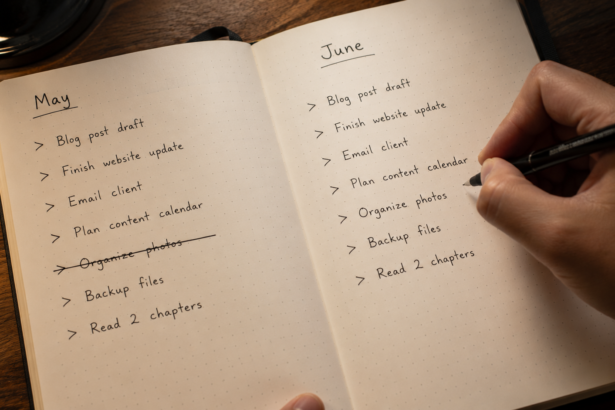 May
> Blog post draft
> Finish website update
> Email client
> Plan content calendar
> Organize photos
> Backup files
> Read 2 chapters
June
> Blog post draft
> Finish website update
> Email client
> Plan content calendar
> Organize photos
> Backup files
> Read 2 chapters